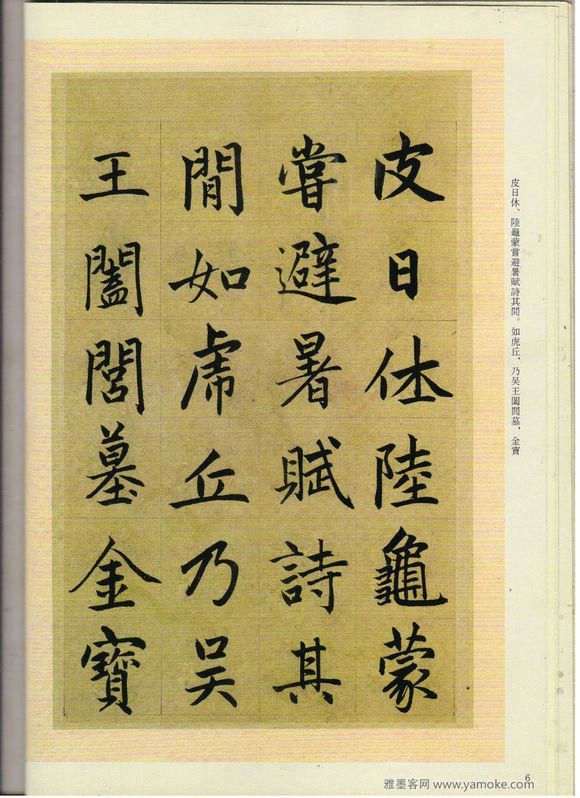 皮日休、陸龜蒙嘗避暑賦詩其間。如虎丘,乃吳王闔閭墓,金寶
皮日休陸龜蒙
嘗避暑賦詩其
閒如虎丘乃吳
王闔閭墓金寶
6
雅墨客网 www.yamoke.com